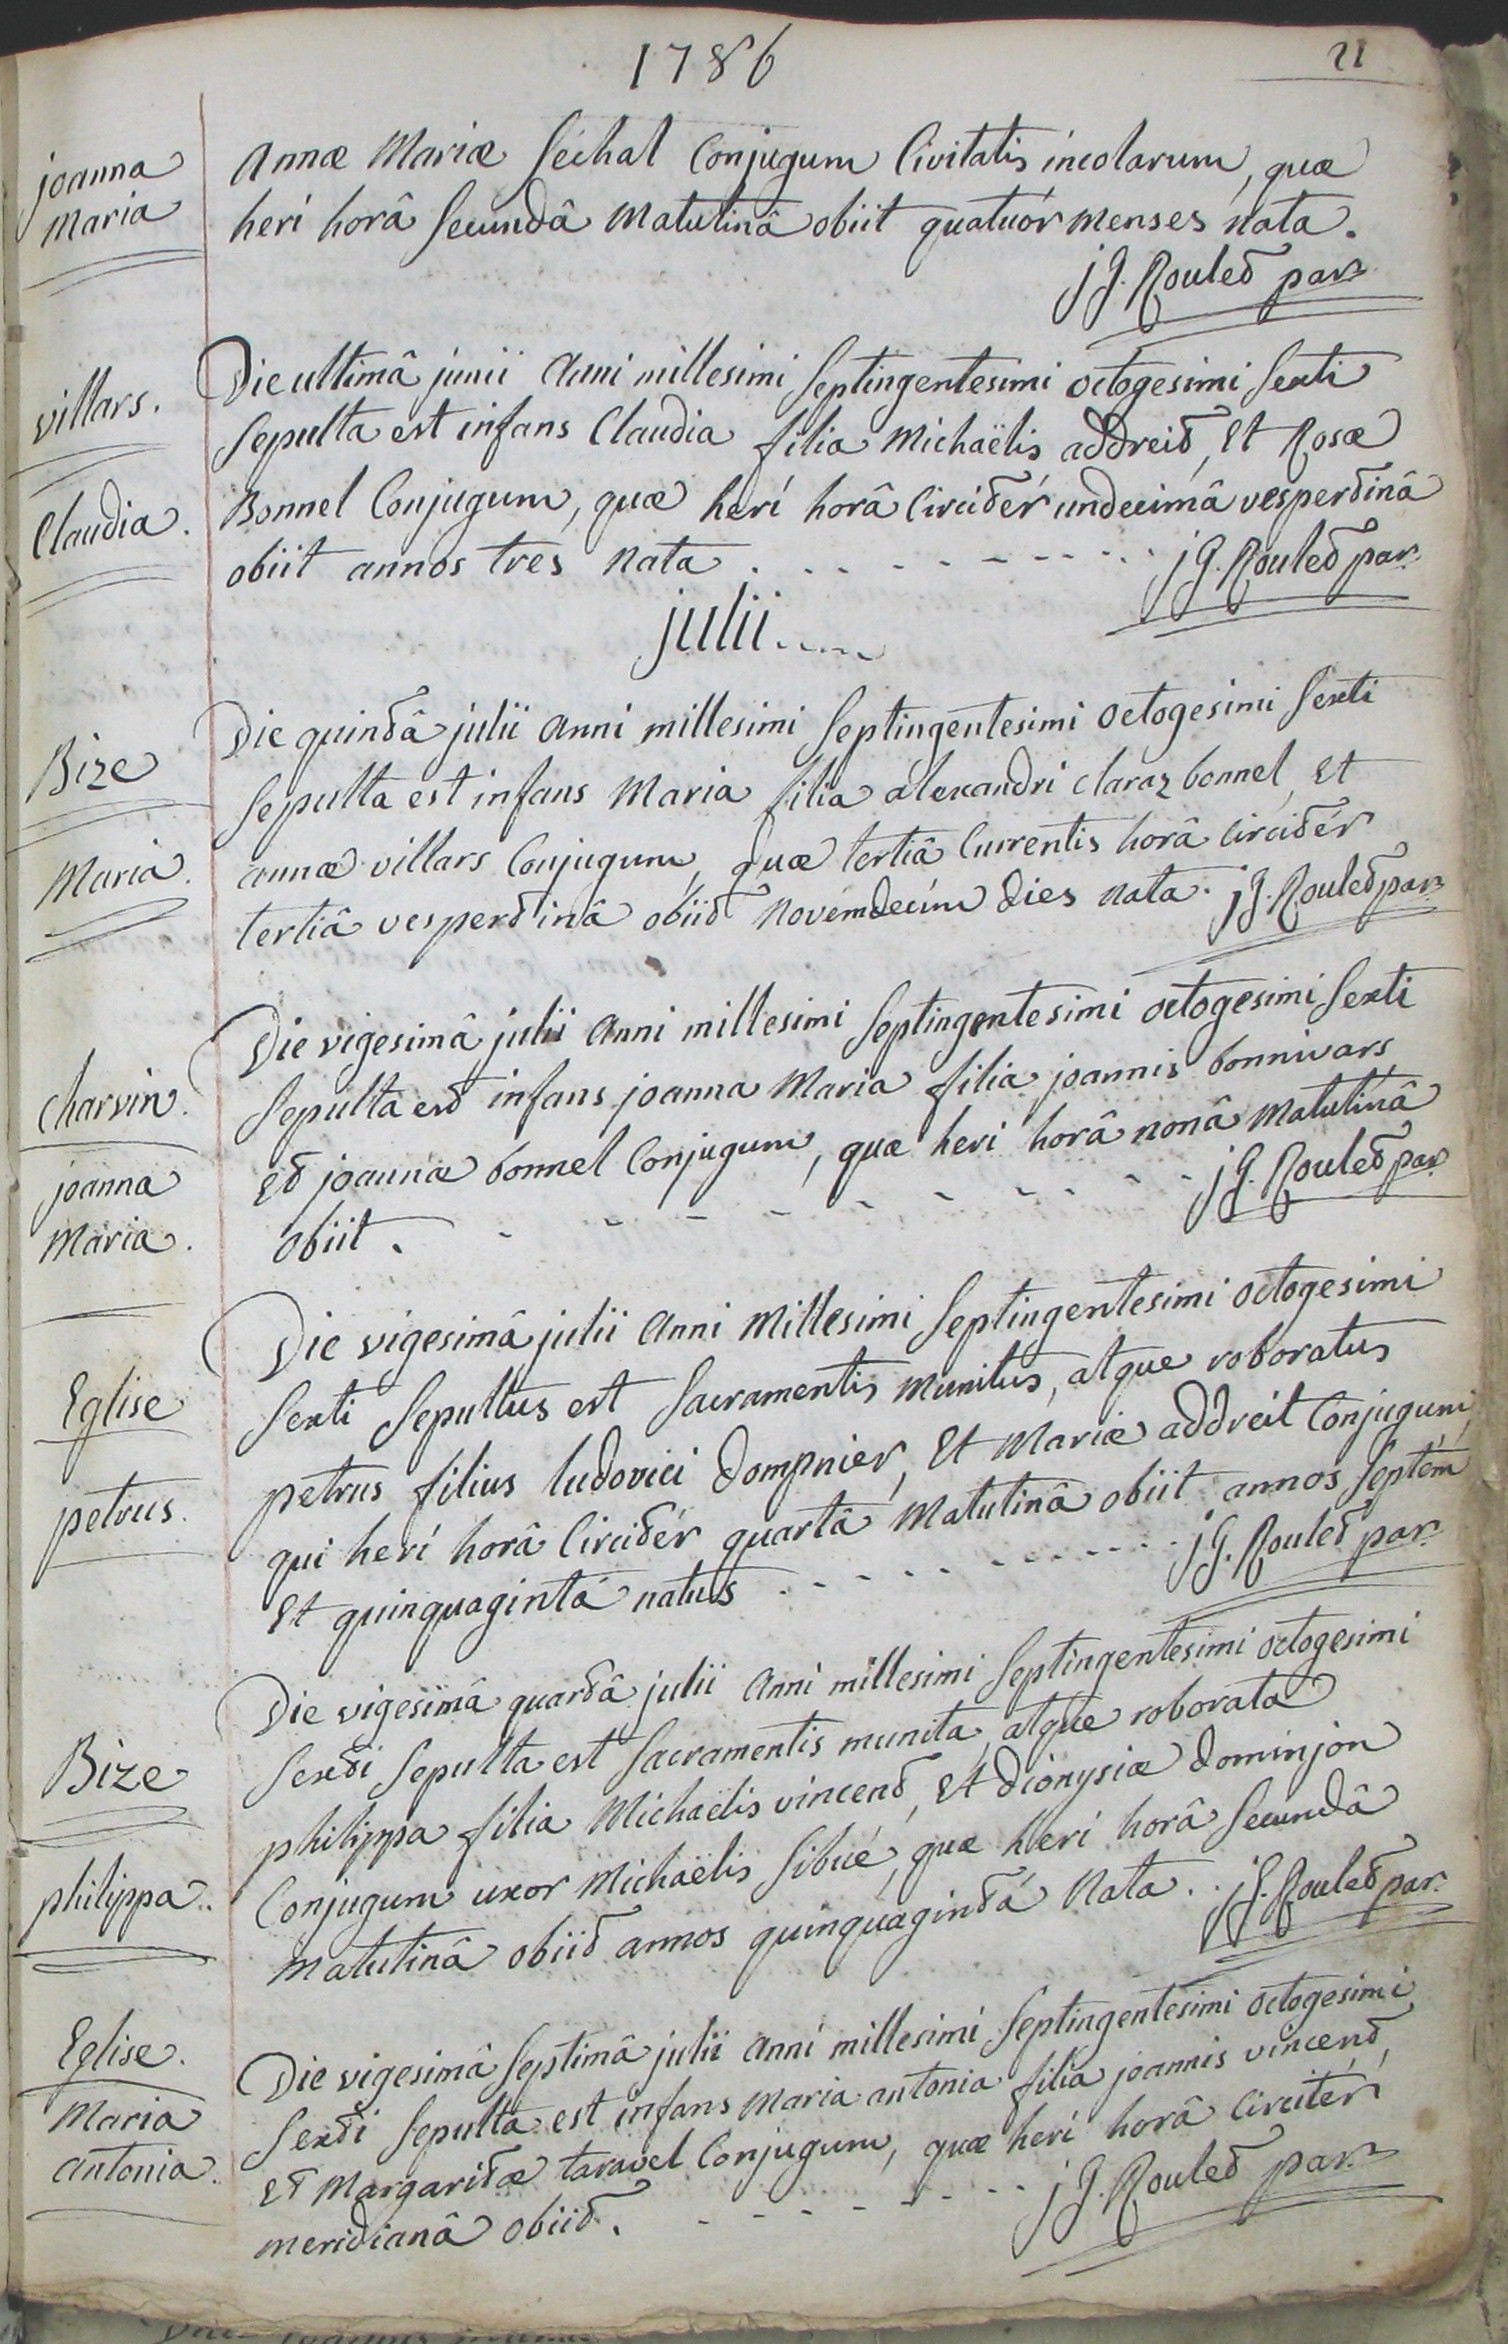 1786
21
joanna
Maria
Annæ Mariæ Séchal Conjugum Civitatis incolarum, quæ
heri horâ Secundâ Matutinâ obiit quatuór menses nata.
j G. Roulet par.
villars.
Claudia.
Die ultimâ junii Anni millesimi Septingentesimi octogesimi Sexti
Sepulta est infans Claudia filia Michaëlis addreit, Et Rosæ
Bonnel Conjugum, quæ herí horâ Circitér undecimâ vespertinâ
obiit annos tres nata . . . . . . . . . j G. Roulet par.
julii.....
Bize
Maria.
Die quintâ julii Anni millesimi Septingentesimi octogesimi Sexti
Sepulta est infans Maria filia alexandri claraz bonnel, Et
annæ villars Conjugum, quæ tertiâ Currentis horâ circitér
tertiâ vespertinâ obiit novémdecím dies nata. j G. Roulet par.
charvin.
joanna
Maria.
Die vigesimâ julii Anni millesimi Septingentesimi octogesimi Sexti
Sepulta est infans joanna Maria filia joannis bonnivars
Et joannæ bonnel Conjugum, quæ heri horâ nonâ Matutinâ
obiit. - - - - - - - - - j G. Roulet par.
Eglise
petrus.
Die vigesimâ julii Anni Millesimi Septingentesimi octogesimi
Sexti Sepultus est Sacramentis munitus, atque roboratus
petrus filius ludovici Dompnier, Et Mariæ addreit Conjugum,
qui herí horâ Circitér quartâ Matutinâ obiit annos Septém
Et quinquagintá natus . . . . . . . . . j G. Roulet par.
Bize
philippa..
Die vigesimâ quartâ julii Anni millesimi Septingentesimi octogesimi
Sexti Sepulta est Sacramentis munita, atque roborata
philippa filia Michaëlis vincent, Et Dionysiæ Dominjon
Conjugum uxor Michaëlis Sibué, quæ herí horâ Secundâ
Matutinâ obiit annos quinquagintá nata.. j G. Roulet par.
Eglise.
Maria
antonia.
Die vigesimâ Septimâ julii Anni millesimi Septingentesimi octogesimi
Sexti Sepulta est infans Maria antonia filia joannis vincent,
Et Margaritæ taravel Conjugum, quæ herí horâ Circitér
meridianâ obiit. - - - - - - j G. Roulet par.